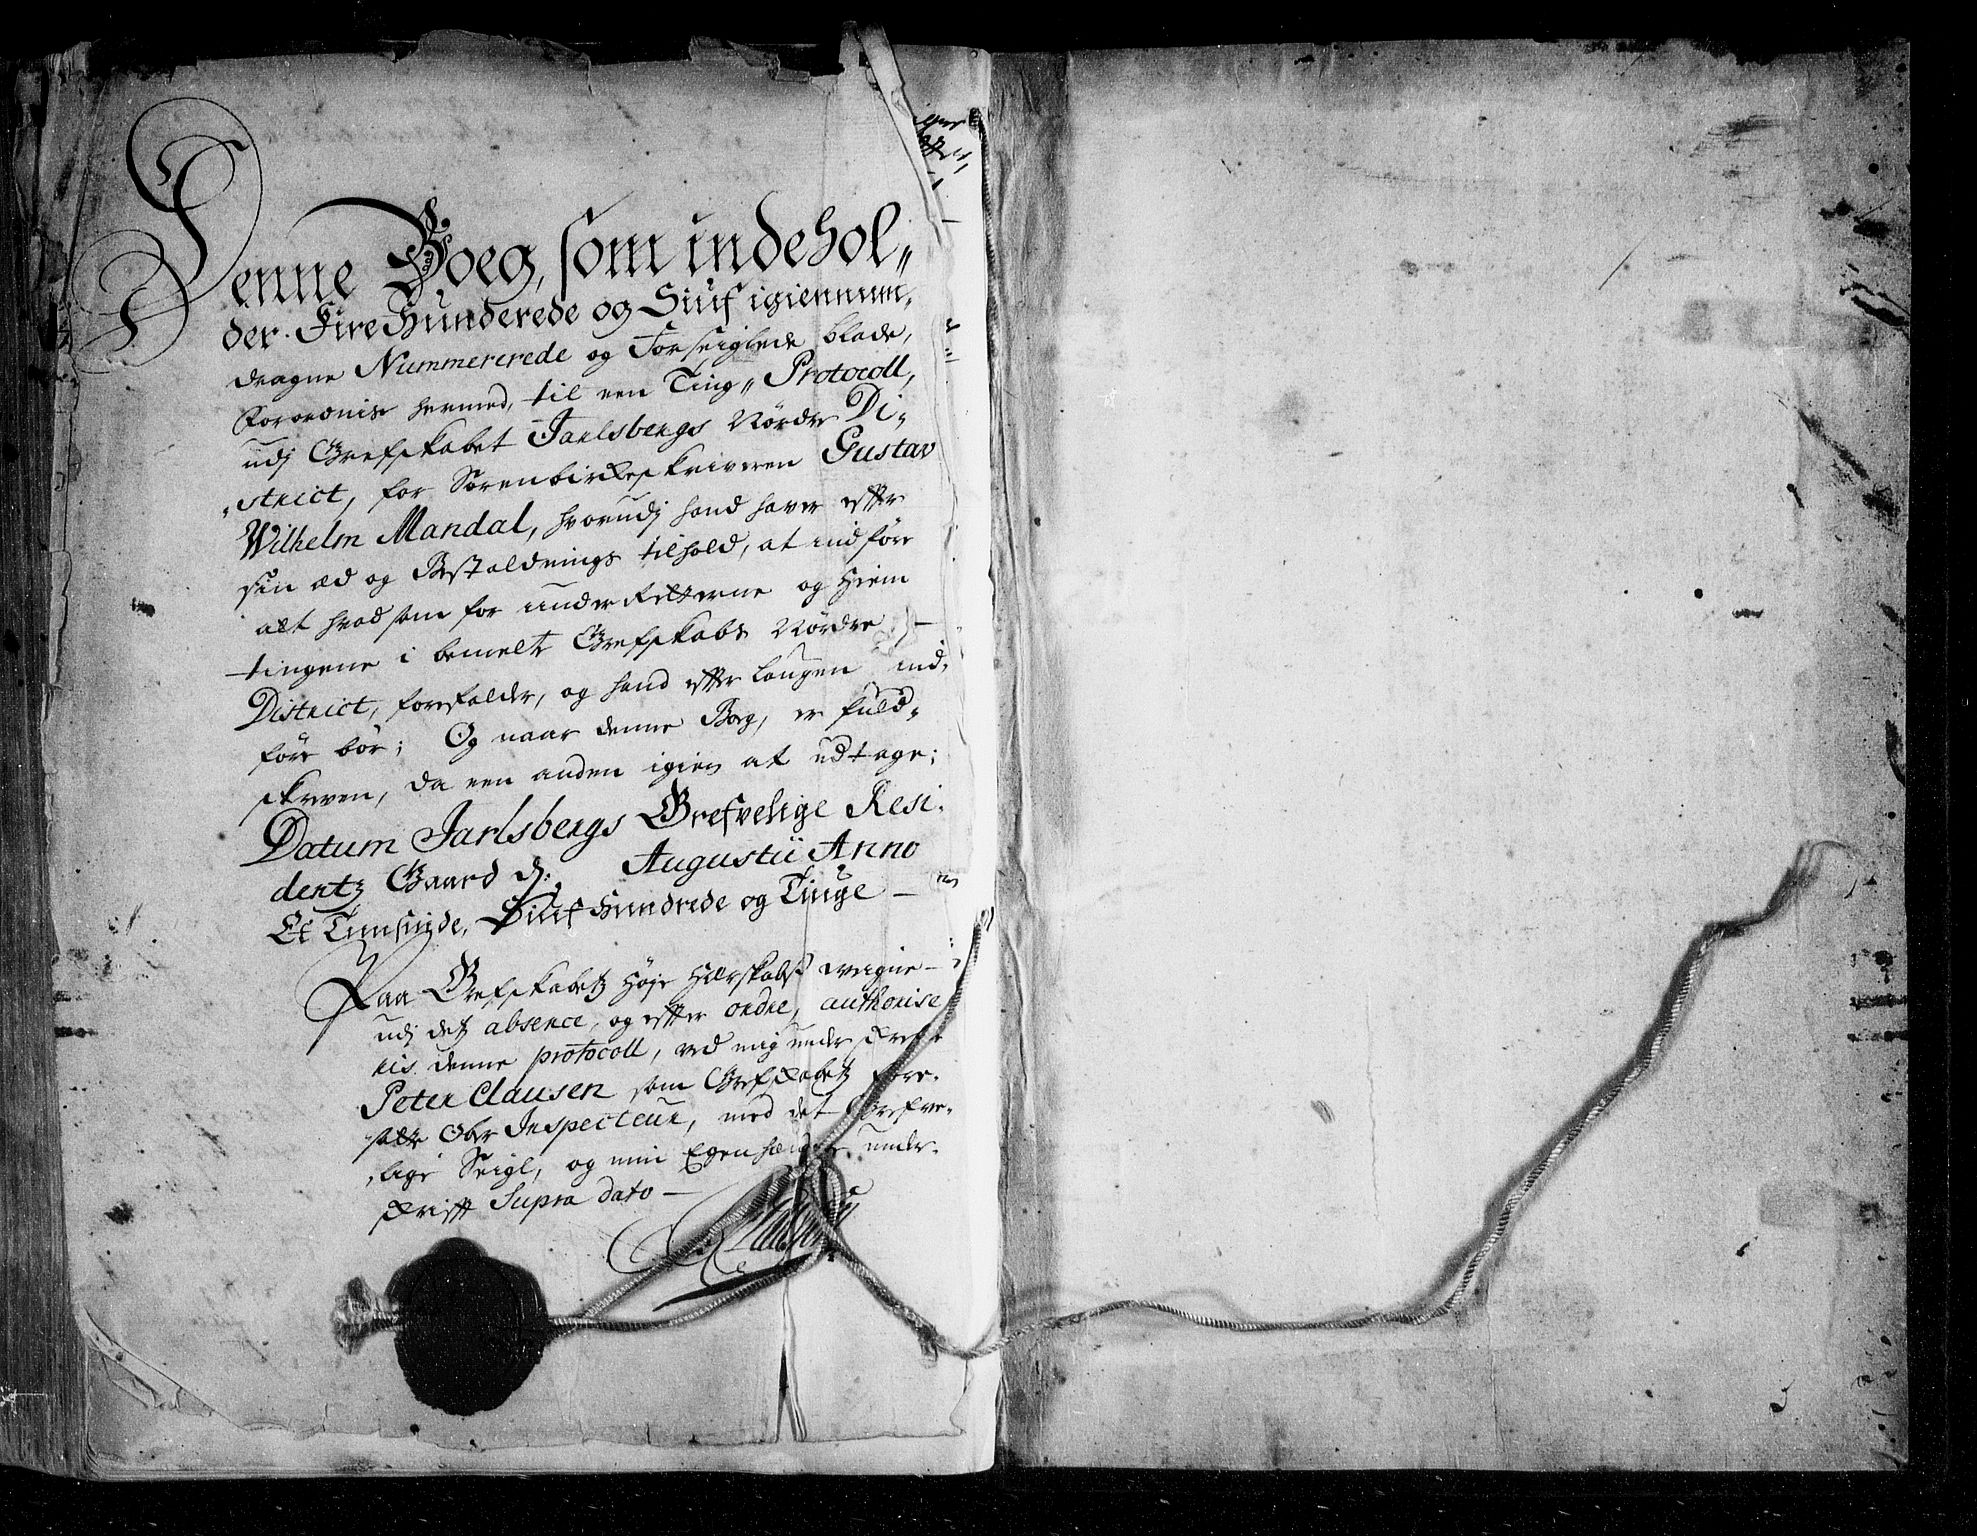 Denne Boeg, som indehol„
der Fire Hunderede og Siuf igiennum„
dragne Nummererede og Forseiglede blade,
Forordnis hermed, til een Ting„ Protocoll,
udj Grefskabet Jarlsbergs Nørdre Di„
„strict, for Sorenbirkeskriveren Gustav
Wilhelm Mandal, hvorudj hand haver efter
sin æd og Bestaldnings tilhold, at indføre
alt hvad som for underRetterne og Hiem
tingene i bemelte Grefskabs Nørdre
District, forefalder, og hand efter Lougen ind„
føre bør; Og naar denne Bog, er fuld„
skreven, da een anden igien at udtage;
Datum Jarlsbergs Grefvelige Resi„
dentz Gaard d: Augustii Anno
Et Tusinde, Siuf Hundrede og Tiuge —
Paa Grefskabetz Høje Herskabs vegne
udj detz absence, og efter ordre, authorise„
ris denne protocoll, ved mig under
Peter Clausen som Grefskabetz fore„
satte Ober Inspecteur, med det Grefve„
„lige Seigl, og min Egenhændige under„
skrift Supra dato —
PClausen